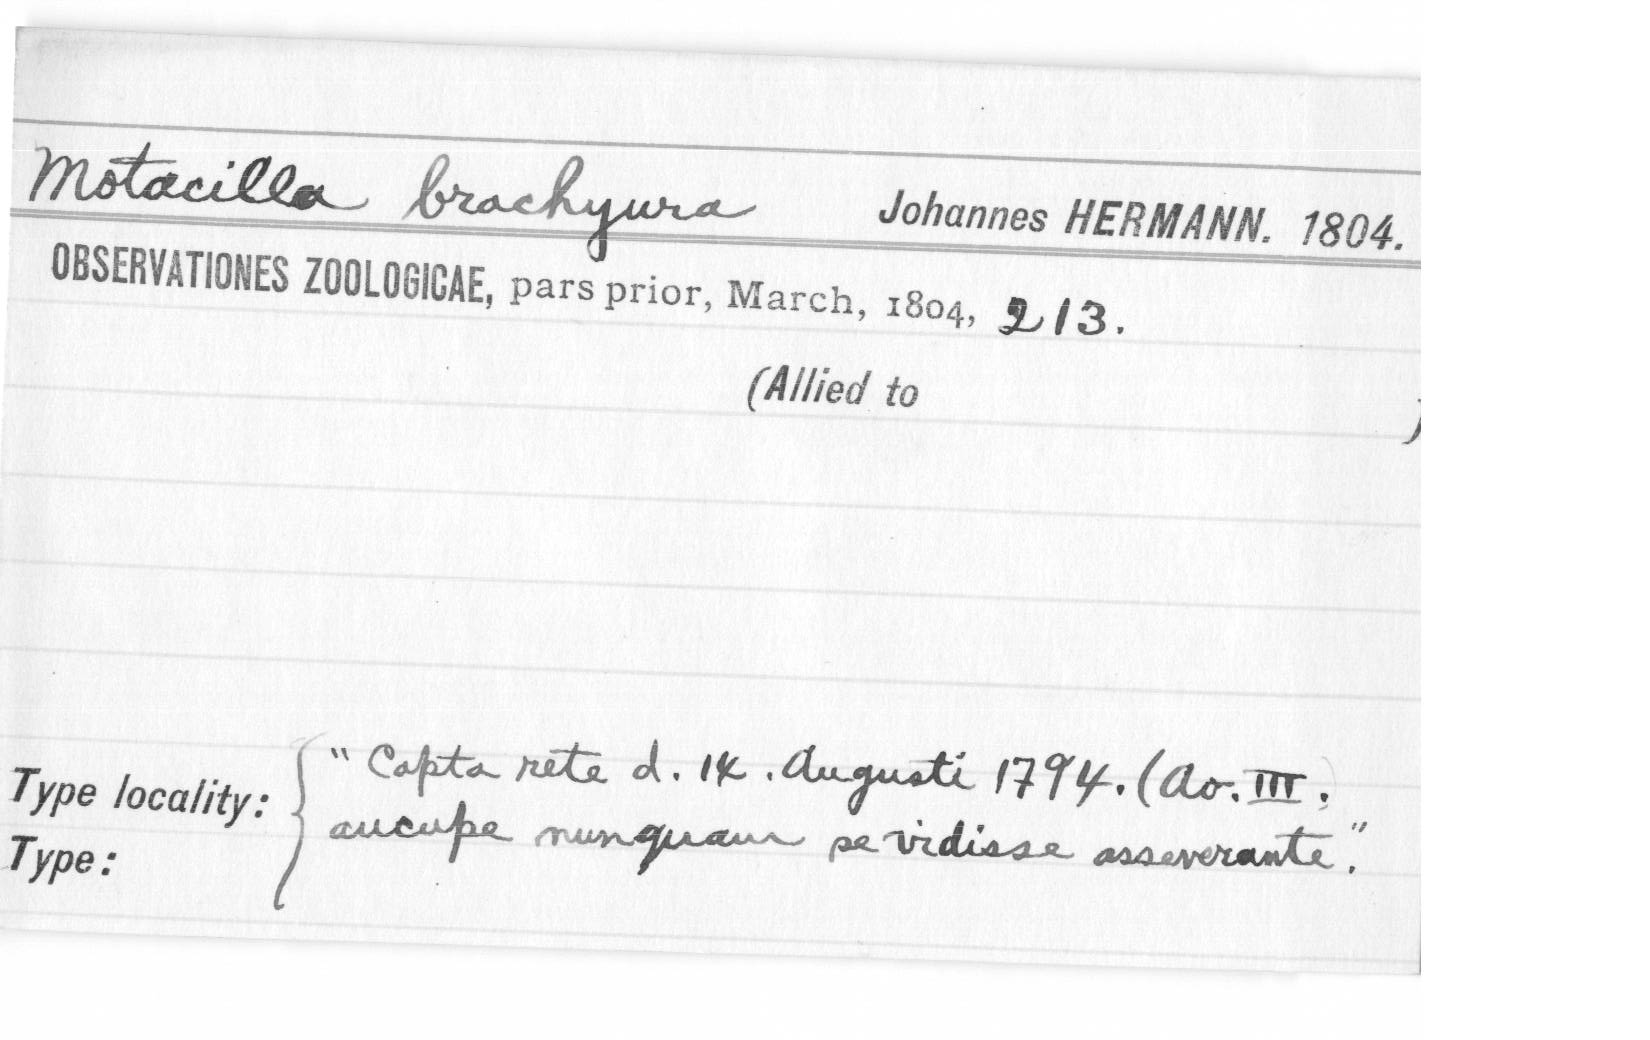 Motacilla brachyura Johannes HERMANN. 1804.
OBSERVATIONES ZOOLOGICAE, pars prior, March, 1804, 213.
(Allied to )
Type locality: { "Capta rete d. 14. Augusti 1794. (Ao. III.)
Type: aucupe nunquam se vidisse asseverante."